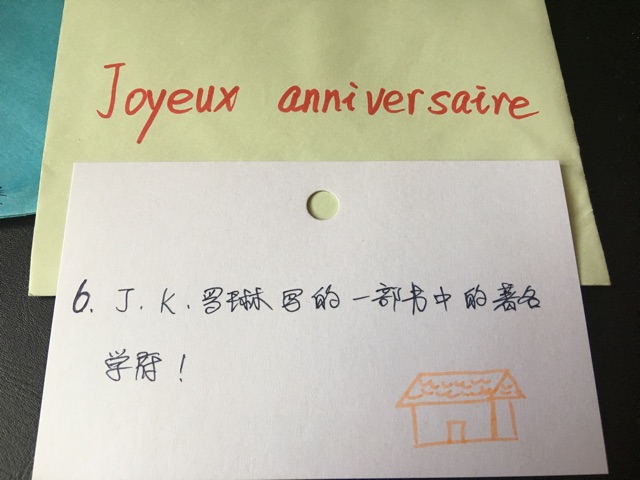 Joyeux anniversaire
6. J.K.罗琳写的一部书中的著名
学府！